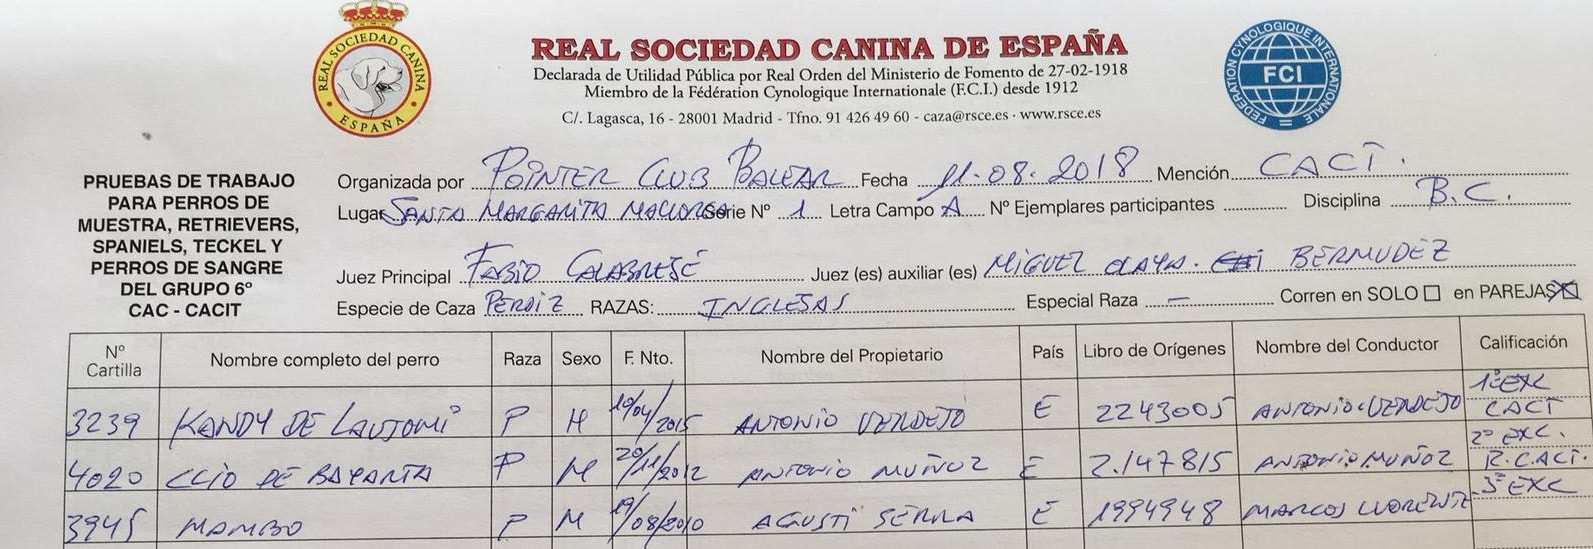 REAL SOCIEDAD CANINA
ESPAÑA
REAL SOCIEDAD CANINA DE ESPAÑA
Declarada de Utilidad Pública por Real Orden del Ministerio de Fomento de 27-02-1918
Miembro de la Fédération Cynologique Internationale (F.C.I.) desde 1912
C/. Lagasca, 16 - 28001 Madrid - Tfno. 91 426 49 60 - caza@rsce.es · www.rsce.es
FEDERATION CYNOLOGIQUE INTERNATIONALE
FCI
PRUEBAS DE TRABAJO
PARA PERROS DE
MUESTRA, RETRIEVERS,
SPANIELS, TECKEL Y
PERROS DE SANGRE
DEL GRUPO 6º
CAC - CACIT
Organizada por POINTER CLUB BALEAR Fecha 11.08.2018 Mención CACT.
Lugar SANTA MARGARITA MALLORCA Serie Nº 1 Letra Campo A Nº Ejemplares participantes Disciplina B.C.
Juez Principal FABIO CALABRESÉ Juez (es) auxiliar (es) MIGUEL OLAYA. BERMUDEZ
Especie de Caza PERDIZ RAZAS: INGLESAS Especial Raza — Corren en SOLO en PAREJAS
Nº Cartilla Nombre completo del perro Raza Sexo F. Nto. Nombre del Propietario País Libro de Orígenes Nombre del Conductor Calificación
3239 KANDY DE P H /04/2015 ANTONIO VERDEJO E 2243005 ANTONIO VERDEJO 1º EXC CACT
4020 CLIO DE P M 20/11/2012 ANTONIO MUÑOZ E 2.147815 ANTONIO MUÑOZ 2º EXC. R.CACT.
3945 MAMBO P M /08/2010 AGUSTI SERRA E 1994948 MARCOS 3º EXC